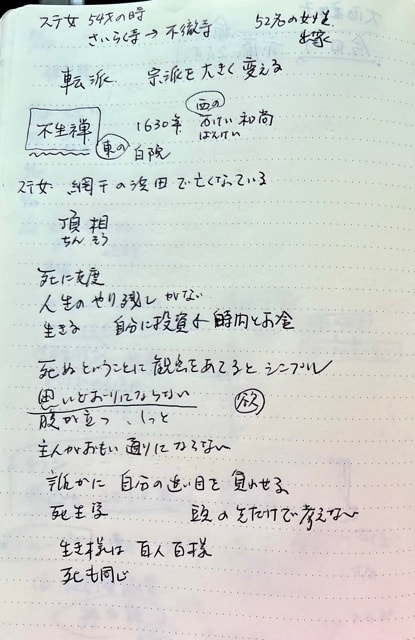 ステ女 54才の時
さいらく寺→不徹寺
52名の女性
出家
転派 宗派を大きく変える
不生禅
1630年
西の
和尚
ばんけい
東の
白隠
ステ女 網干の浜田で亡くなっている
頂相
ちんそう
死に支度
人生のやり残しがない
生きる 自分に投資 時間とお金
死ぬということに観点をあてるとシンプル
思いどおりにならない
欲
腹が立つ、しっと
主人がおもい通りにならない
誰かに 自分の追い目を負わせる
死生
頭の先だけで考えない
生き様は百人百様
死も同じ